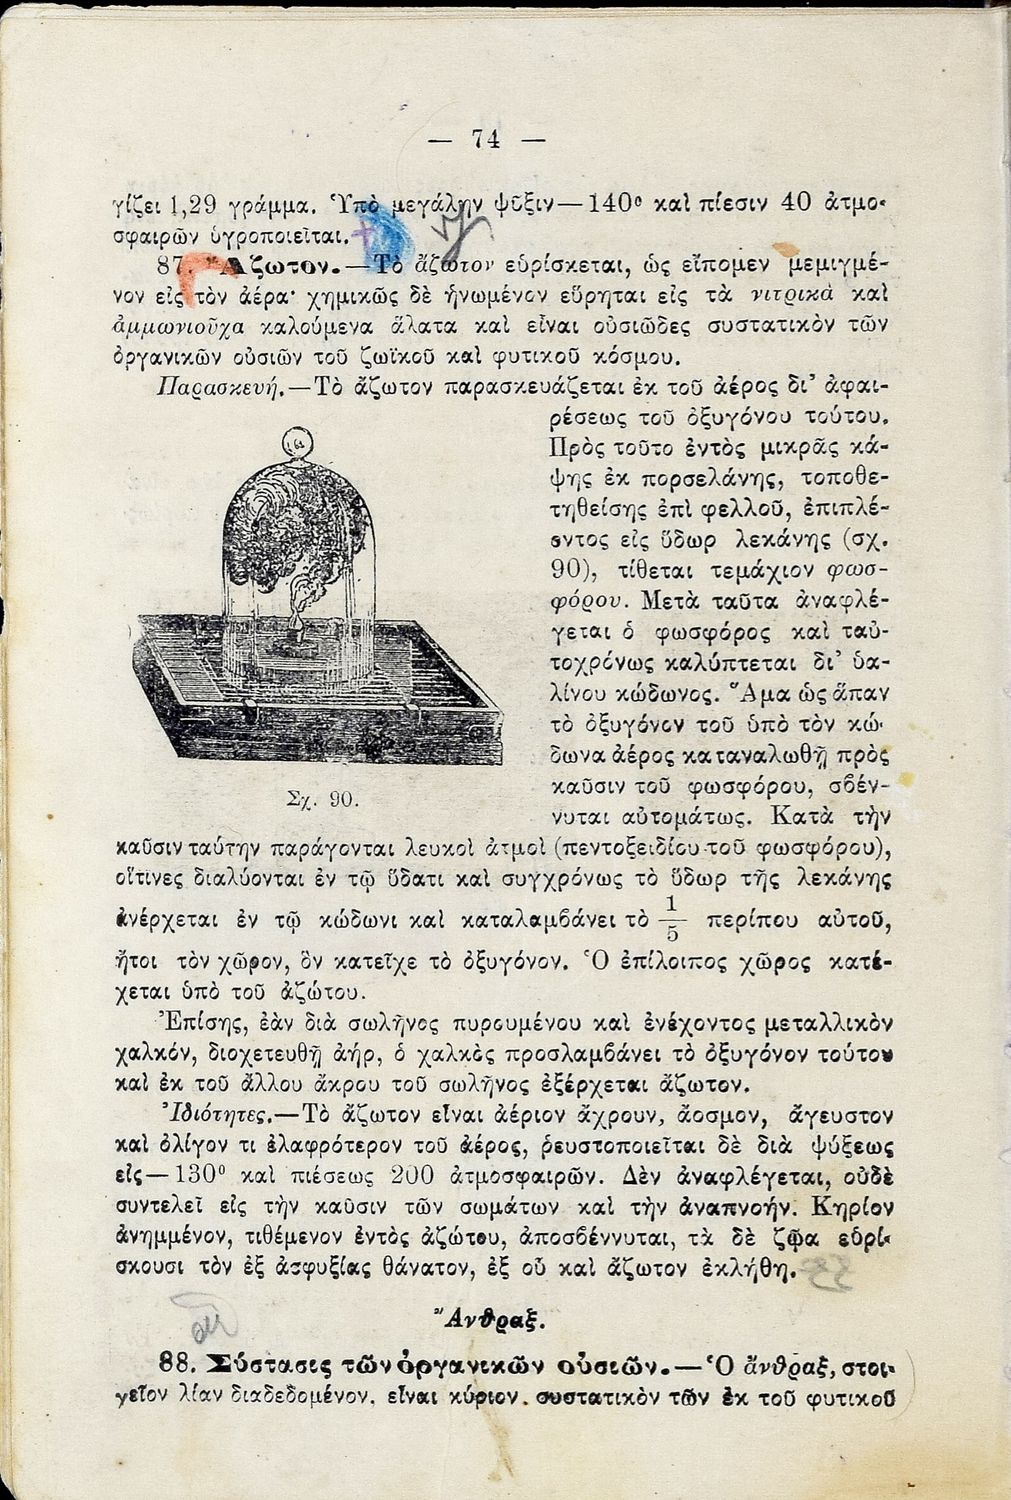 — 74 —
γίζει 1,29 γράμμα. Ὑπὸ μεγάλην ψῦξιν—140° καὶ πίεσιν 40 ἀτμο-
σφαιρῶν ὑγροποιεῖται.
87. Ἄζωτον.—Τὸ ἄζωτον εὑρίσκεται, ὡς εἴπομεν μεμιγμέ-
νον εἰς τὸν ἀέρα· χημικῶς δὲ ἡνωμένον εὕρηται εἰς τὰ νιτρικὰ καὶ
ἀμμωνιοῦχα καλούμενα ἅλατα καὶ εἶναι οὐσιῶδες συστατικὸν τῶν
ὀργανικῶν οὐσιῶν τοῦ ζωϊκοῦ καὶ φυτικοῦ κόσμου.
Παρασκευή.—Τὸ ἄζωτον παρασκευάζεται ἐκ τοῦ ἀέρος δι' ἀφαι-
ρέσεως τοῦ ὀξυγόνου τούτου.
Πρὸς τοῦτο ἐντὸς μικρᾶς κά-
ψης ἐκ πορσελάνης, τοποθε-
τηθείσης ἐπὶ φελλοῦ, ἐπιπλέ-
οντος εἰς ὕδωρ λεκάνης (σχ.
90), τίθεται τεμάχιον φωσ-
φόρου. Μετὰ ταῦτα ἀναφλέ-
γεται ὁ φωσφόρος καὶ ταὐ-
τοχρόνως καλύπτεται δι' ὑα-
λίνου κώδωνος. Ἅμα ὡς ἅπαν
τὸ ὀξυγόνον τοῦ ὑπὸ τὸν κώ-
δωνα ἀέρος καταναλωθῇ πρὸς
καῦσιν τοῦ φωσφόρου, σβέν-
νυται αὐτομάτως. Κατὰ τὴν
Σχ. 90.
καῦσιν ταύτην παράγονται λευκοὶ ἀτμοὶ (πεντοξειδίου τοῦ φωσφόρου),
οἵτινες διαλύονται ἐν τῷ ὕδατι καὶ συγχρόνως τὸ ὕδωρ τῆς λεκάνης
ἀνέρχεται ἐν τῷ κώδωνι καὶ καταλαμβάνει τὸ 1/5 περίπου αὐτοῦ,
ἤτοι τὸν χῶρον, ὃν κατεῖχε τὸ ὀξυγόνον. Ὁ ἐπίλοιπος χῶρος κατέ-
χεται ὑπὸ τοῦ ἀζώτου.
Ἐπίσης, ἐὰν διὰ σωλῆνος πυρουμένου καὶ ἐνέχοντος μεταλλικὸν
χαλκόν, διοχετευθῇ ἀήρ, ὁ χαλκὸς προσλαμβάνει τὸ ὀξυγόνον τούτου
καὶ ἐκ τοῦ ἄλλου ἄκρου τοῦ σωλῆνος ἐξέρχεται ἄζωτον.
Ἰδιότητες.—Τὸ ἄζωτον εἶναι ἀέριον ἄχρουν, ἄοσμον, ἄγευστον
καὶ ὀλίγον τι ἐλαφρότερον τοῦ ἀέρος, ῥευστοποιεῖται δὲ διὰ ψύξεως
εἰς—130° καὶ πιέσεως 200 ἀτμοσφαιρῶν. Δὲν ἀναφλέγεται, οὐδὲ
συντελεῖ εἰς τὴν καῦσιν τῶν σωμάτων καὶ τὴν ἀναπνοήν. Κηρίον
ἀνημμένον, τιθέμενον ἐντὸς ἀζώτου, ἀποσβέννυται, τὰ δὲ ζῷα εὑρί-
σκουσι τὸν ἐξ ἀσφυξίας θάνατον, ἐξ οὗ καὶ ἄζωτον ἐκλήθη.
Ἄνθραξ.
88. Σύστασις τῶν ὀργανικῶν οὐσιῶν.—Ὁ ἄνθραξ, στοι-
χεῖον λίαν διαδεδομένον, εἶναι κύριον συστατικὸν τῶν ἐκ τοῦ φυτικοῦ